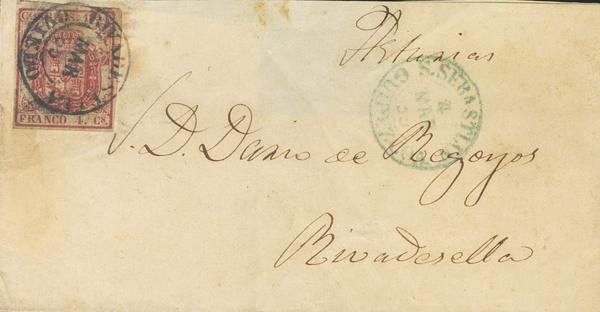 Asturias
S. D. Dario de Regoyos
Rivadesella
FRANCO 4. Cs.
S. SEBASTIAN
GUIPUZCOA